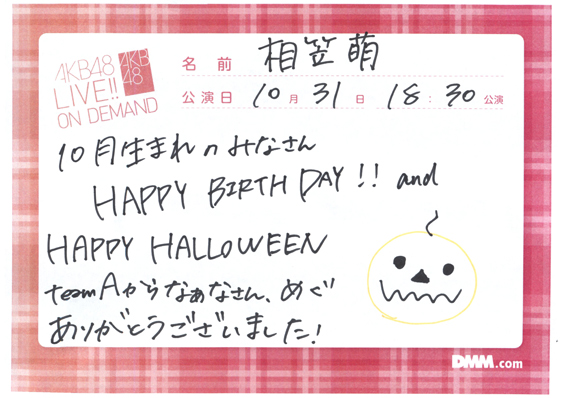 AKB48
LIVE!!
ON DEMAND
AKB
48
名前 相笠萌
公演日 10月31日 18:30公演
10月生まれのみなさん
HAPPY BIRTHDAY!! and
HAPPY HALLOWEEN
teamAからなぁなさん、めぐ
ありがとうございました!
DMM.com